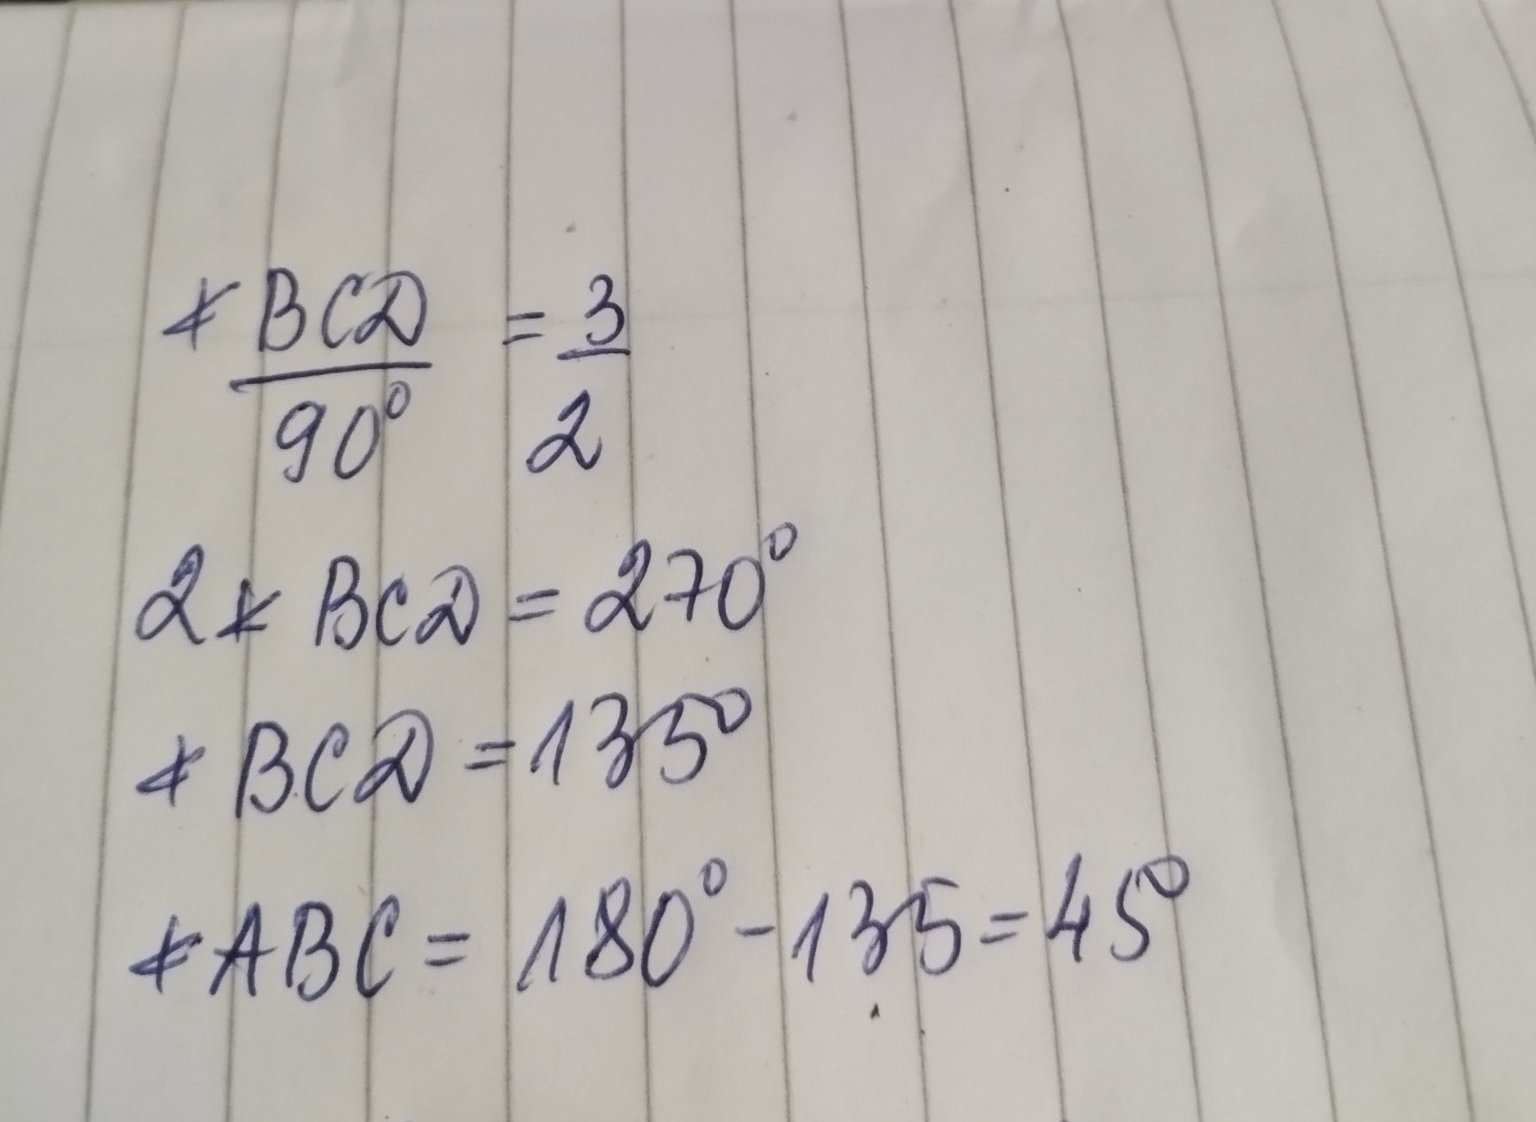 ∢BCD = 3
90° 2
2∢BCD = 270°
∢BCD = 135°
∢ABC = 180° - 135 = 45°